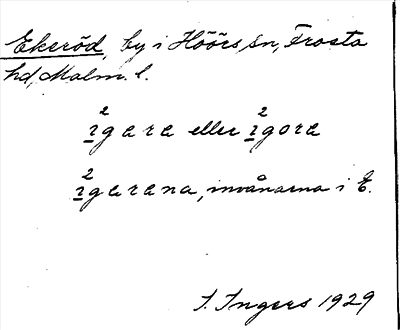 Ekeröd, by i Höörs sn, Frosta
hd, Malm. l.
²ɪgara eller ²ɪgora
²ɪgarana, invånarna i E.
I. Ingers 1929